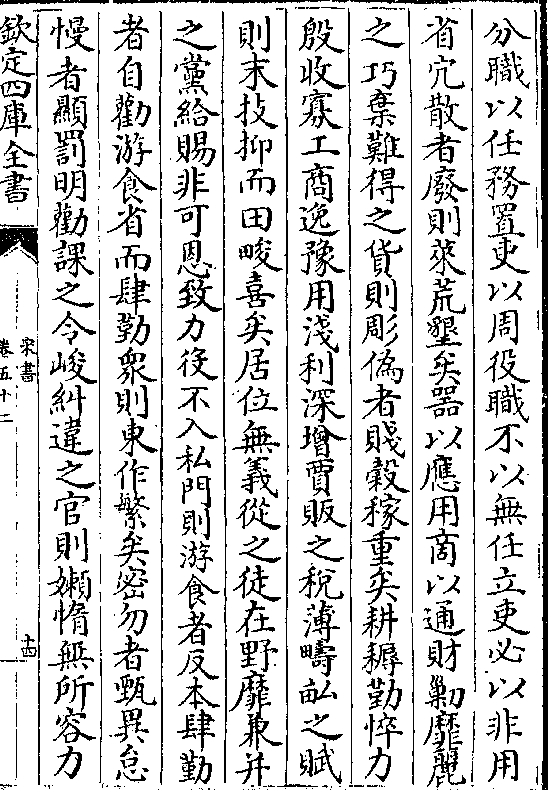 分職以任務置吏以周役職不以無任立吏必以非用
省冗散者廢則萊荒墾矣器以應用商以通財勦靡麗
之巧棄難得之貨則彫偽者賤穀稼重矣耕耨勤悴力
殷收寡工商逸豫用淺利深增賈販之稅薄疇畆之賦
則末技抑而田畯喜矣居位無義從之徒在野靡兼并
之黨給賜非可恩致力役不入私門則游食者反本肆勤
者自勸游食省而肆勤衆則東作繁矣密勿者甄異怠
慢者顯罰明勸課之令峻糾違之官則嬾惰無所容力
欽定四庫全書
宋書
卷五十二
十四